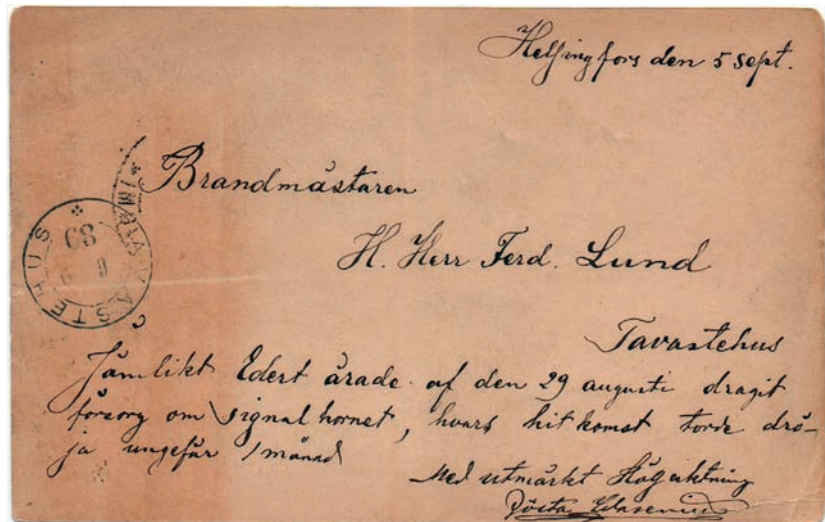 Helsingfors den 5 Sept.
Brandmästaren
H. Herr Ferd. Lund
Tavastehus
Jämlikt Edert ärade af den 29 augusti dragit
försorg om signalhornet, hvars hitkomst torde drö-
ja ungefär 1 månad
Med utmärkt Högaktning
Gösta
TAVASTEHUS